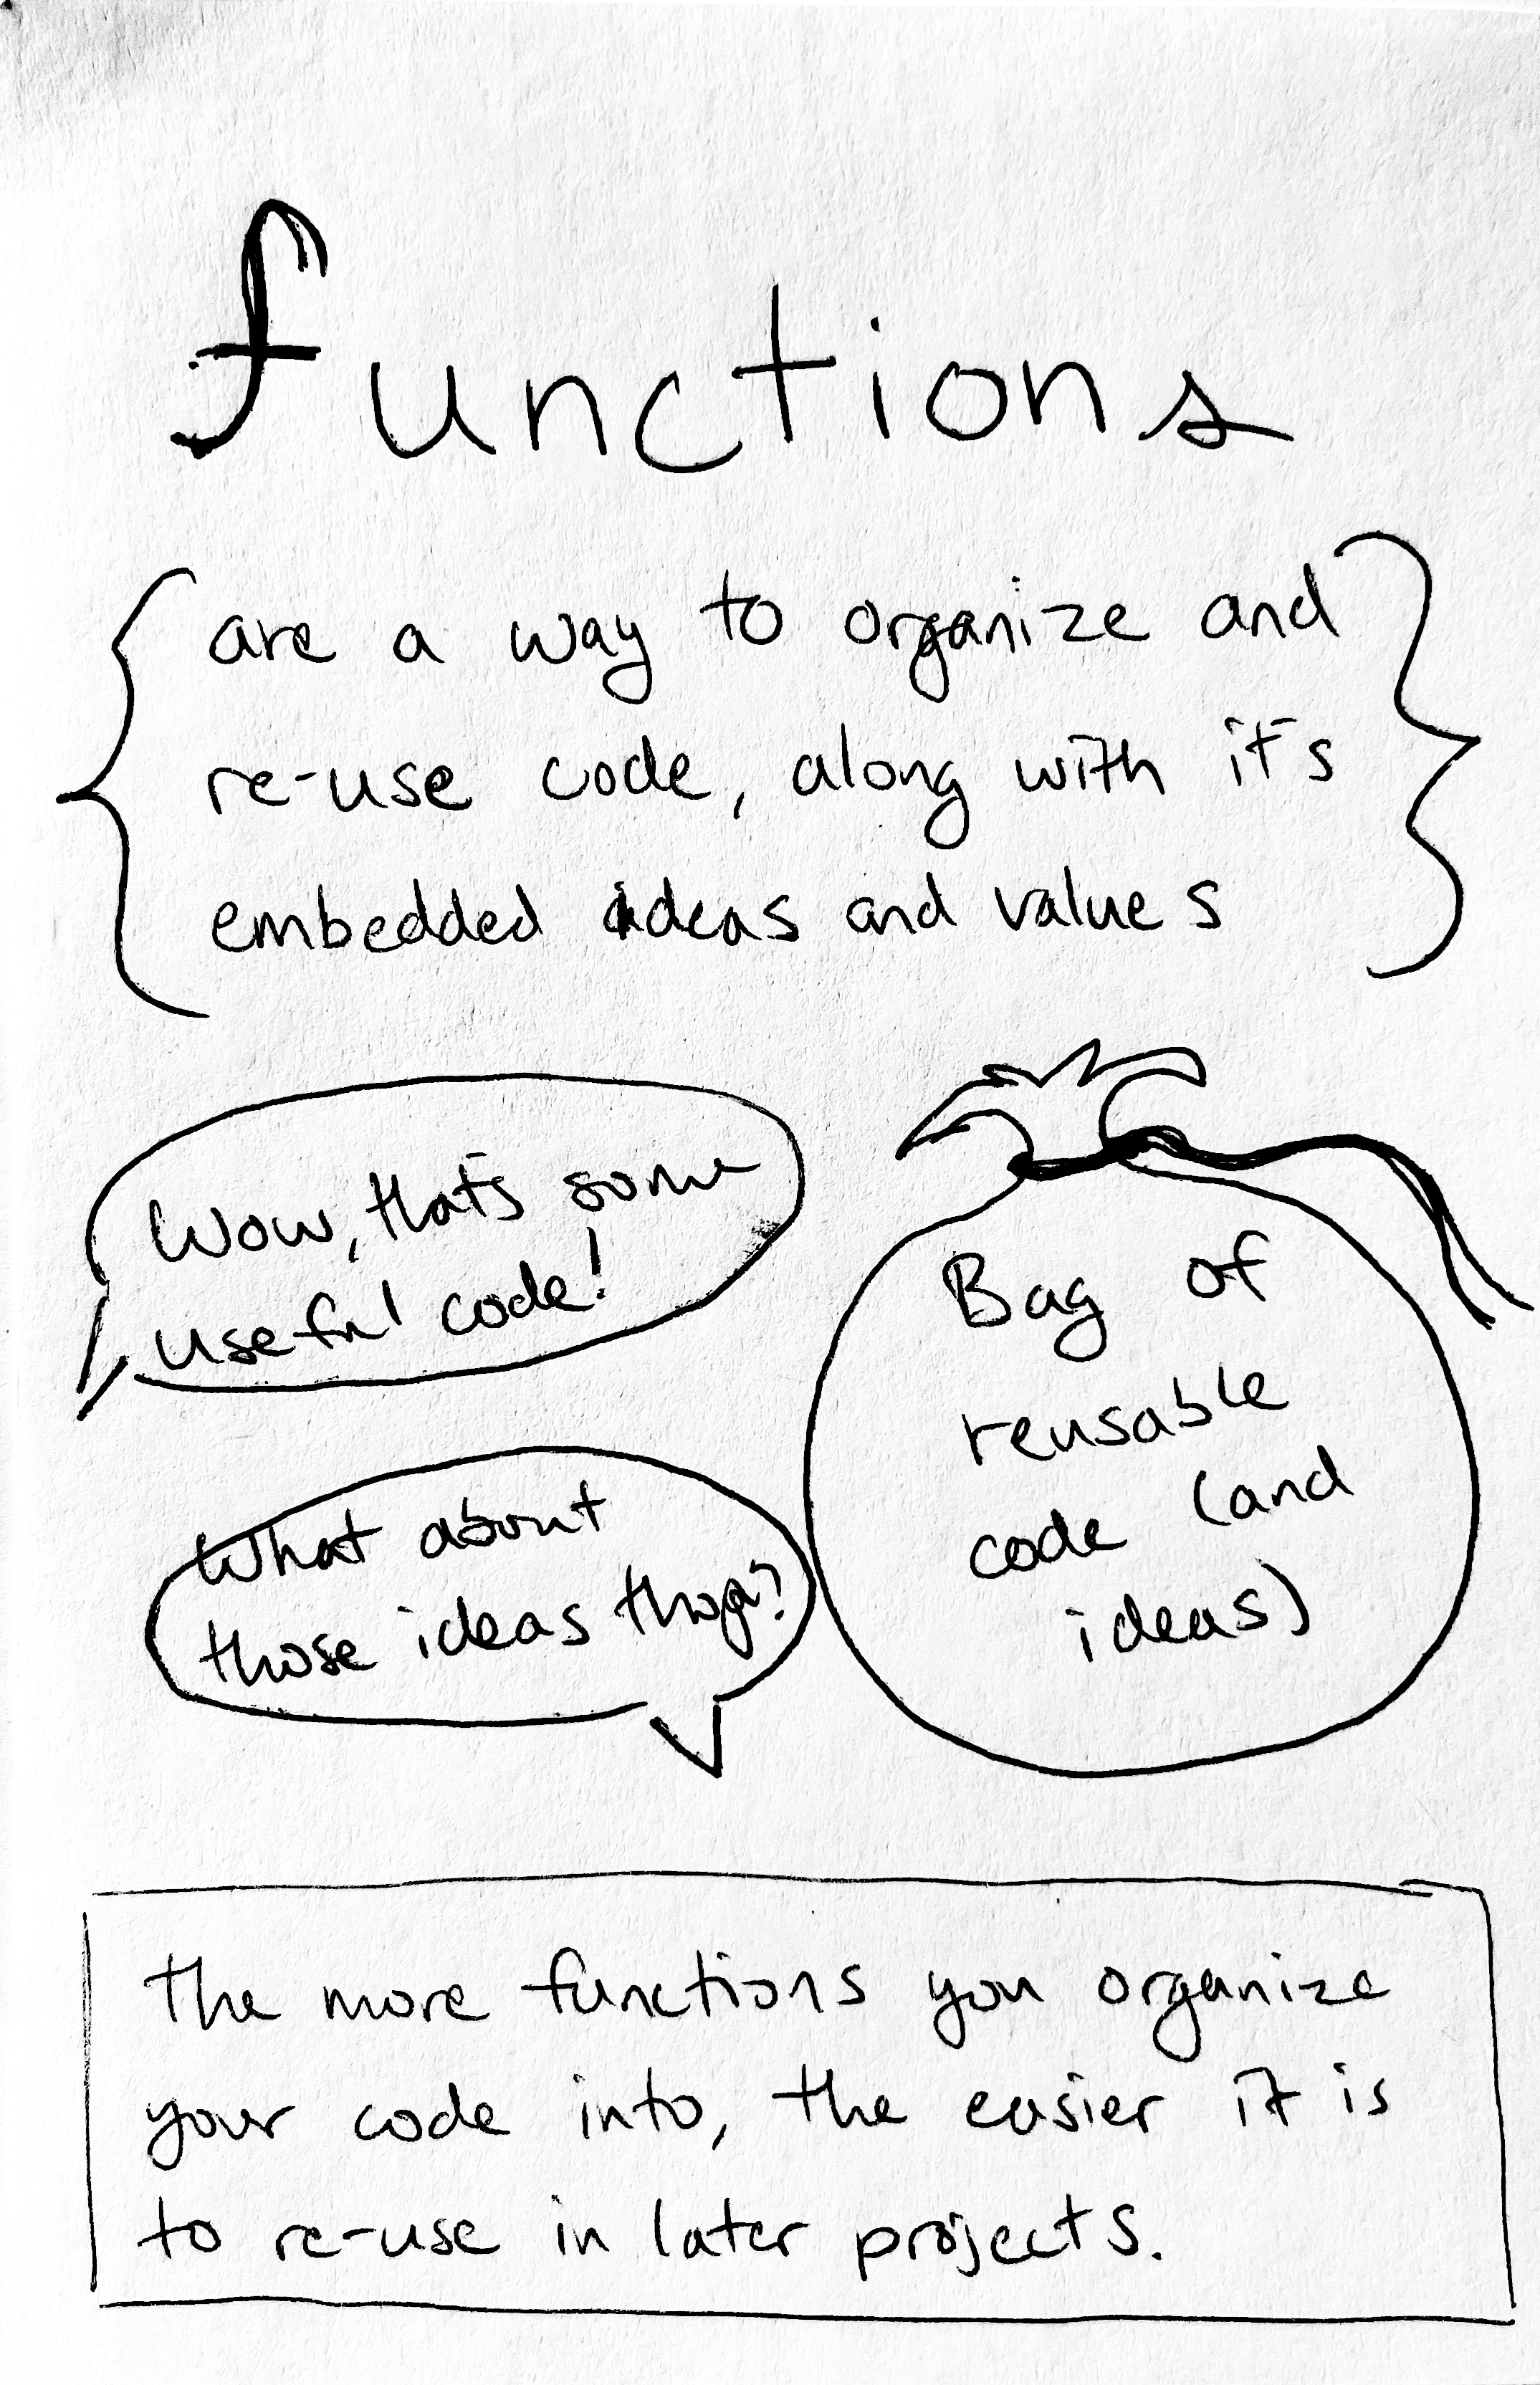 functions
are a way to organize and
re-use code, along with it's
embedded ideas and values
Wow, that's some
useful code!
What about
those ideas tho?
Bag of
reusable
code (and
ideas)
The more functions you organize
your code into, the easier it is
to re-use in later projects.